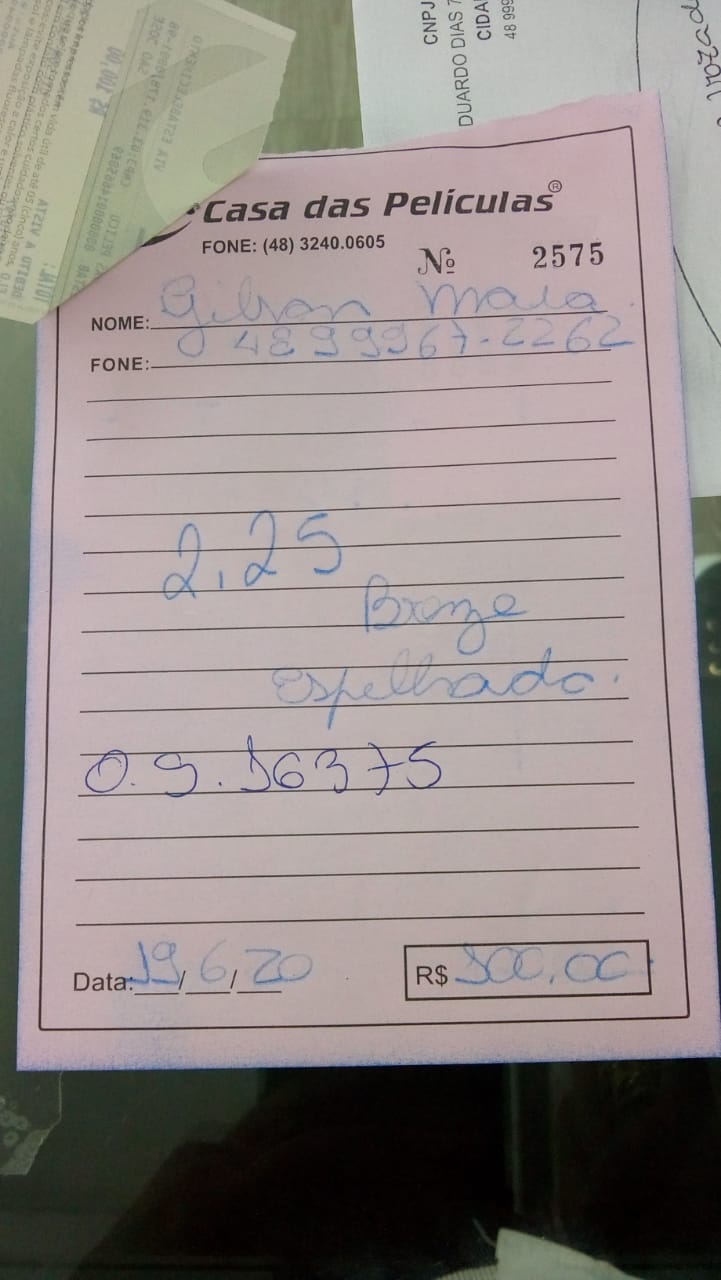 CNPJ
DUARDO DIAS 7
CIDA
48 999
Casa das Películas®
FONE: (48) 3240.0605
Nº 2575
NOME: Gilson Maia
FONE: 48 99967-2262
2,25
Bronze
Espelhado.
O.S. 16375
Data: 19/6/20
R$ 100,00